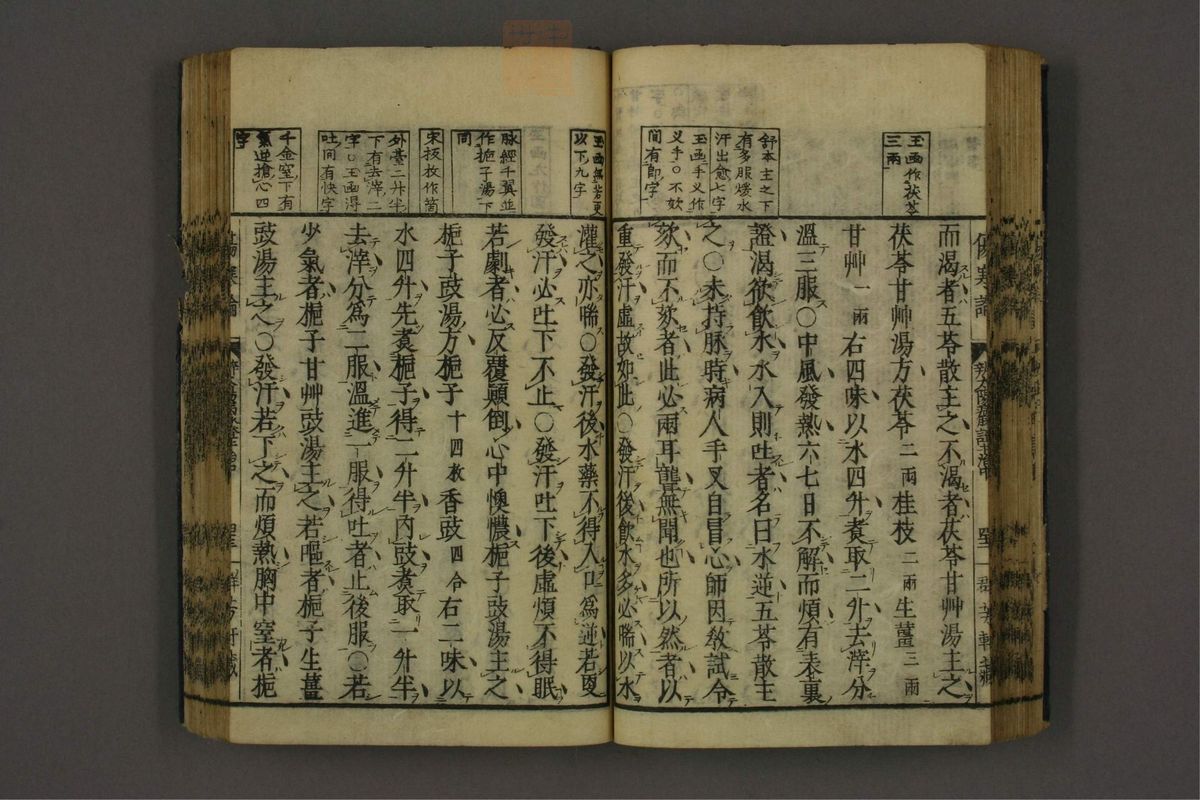 玉函作茯苓
三兩
舒本主之下
有多服煖水
汗出愈七字
玉函手义作
义手○不欬
間有即字
而渴者五苓散主之不渴者茯苓甘艸湯主之
茯苓甘艸湯方茯苓二兩桂枝二兩生薑三兩
甘艸一兩右四味以水四升煮取二升去滓分
溫三服○中風發熱六七日不解而煩有表裏
證渴欲飲水水入則吐者名曰水逆五苓散主
之○未持脉時病人手叉自冒心師因教試令
欬而不欬者此必兩耳聾無聞也所以然者以
重發汗虛故如此○發汗後飲水多必喘以水
傷寒論
玉函無若更
以下九字
脉經千翼並
作梔子湯下
同
宋板枚作箇
外臺二升半
下有去滓二
字○玉函得
吐間有快字
千金窒下有
氣逆搶心四
字
灌之亦喘○發汗後水藥不得入口爲逆若更
發汗必吐下不止○發汗吐下後虛煩不得眠
若劇者必反覆顛倒心中懊憹梔子豉湯主之
梔子豉湯方梔子十四枚香豉四合右二味以
水四升先煮梔子得二升半內豉煮取一升半
去滓分爲二服溫進一服得吐者止後服○若
少氣者梔子甘艸豉湯主之若嘔者梔子生薑
豉湯主之○發汗若下之而煩熱胸中窒者梔